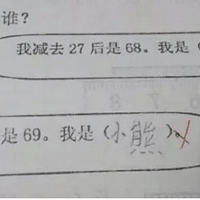 谁?
我减去 27 后是 68。我是（
是 69。我是（小熊）。